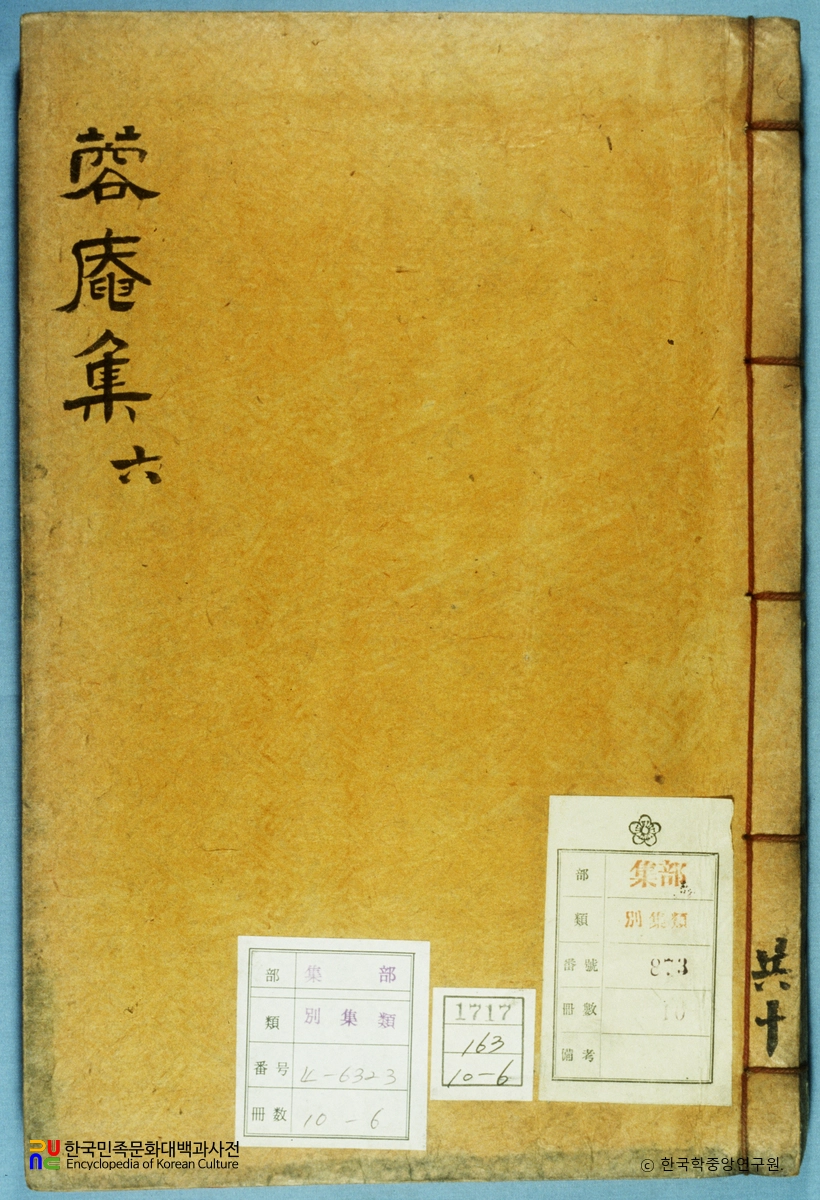 蓉庵集 六
共十
部 集部
類 別集類
番號 873
冊數 10
備考
部 集部
類 別集類
番号 K4-6323
冊数 10-6
1717
163
10-6
한국민족문화대백과사전
Encyclopedia of Korean Culture
© 한국학중앙연구원